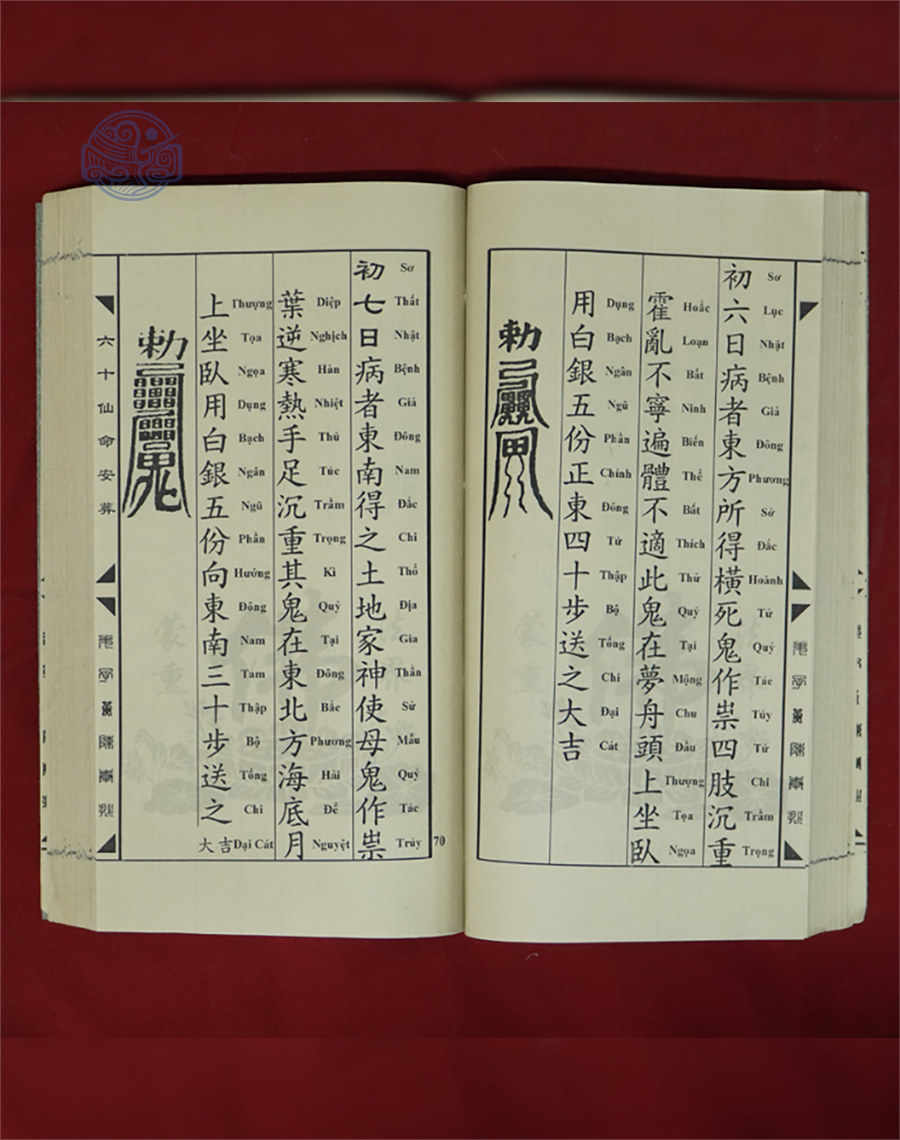 初六日病者東方所得橫死鬼作祟四肢沉重
Sơ Lục Nhật Bệnh Giả Đông Phương Sở Đắc Hoành Tử Quỷ Tác Túy Tứ Chi Trầm Trọng
霍亂不寧遍體不適此鬼在夢舟頭上坐臥
Hoắc Loạn Bất Ninh Biến Thể Bất Thích Thử Quỷ Tại Mộng Chu Đầu Thượng Tọa Ngọa
用白銀五份正東四十步送之大吉
Dụng Bạch Ngân Ngũ Phần Chính Đông Tứ Thập Bộ Tống Chi Đại Cát
勅
70
初七日病者東南得之土地家神使母鬼作祟
Sơ Thất Nhật Bệnh Giả Đông Nam Đắc Chi Thổ Địa Gia Thần Sử Mẫu Quỷ Tác Trủy
葉逆寒熱手足沉重其鬼在東北方海底月
Diệp Nghịch Hàn Nhiệt Thủ Túc Trầm Trọng Kì Quỷ Tại Đông Bắc Phương Hải Để Nguyệt
上坐臥用白銀五份向東南三十步送之大吉
Thượng Tọa Ngọa Dụng Bạch Ngân Ngũ Phần Hướng Đông Nam Tam Thập Bộ Tống Chi Đại Cát
勅
六十仙命安葬